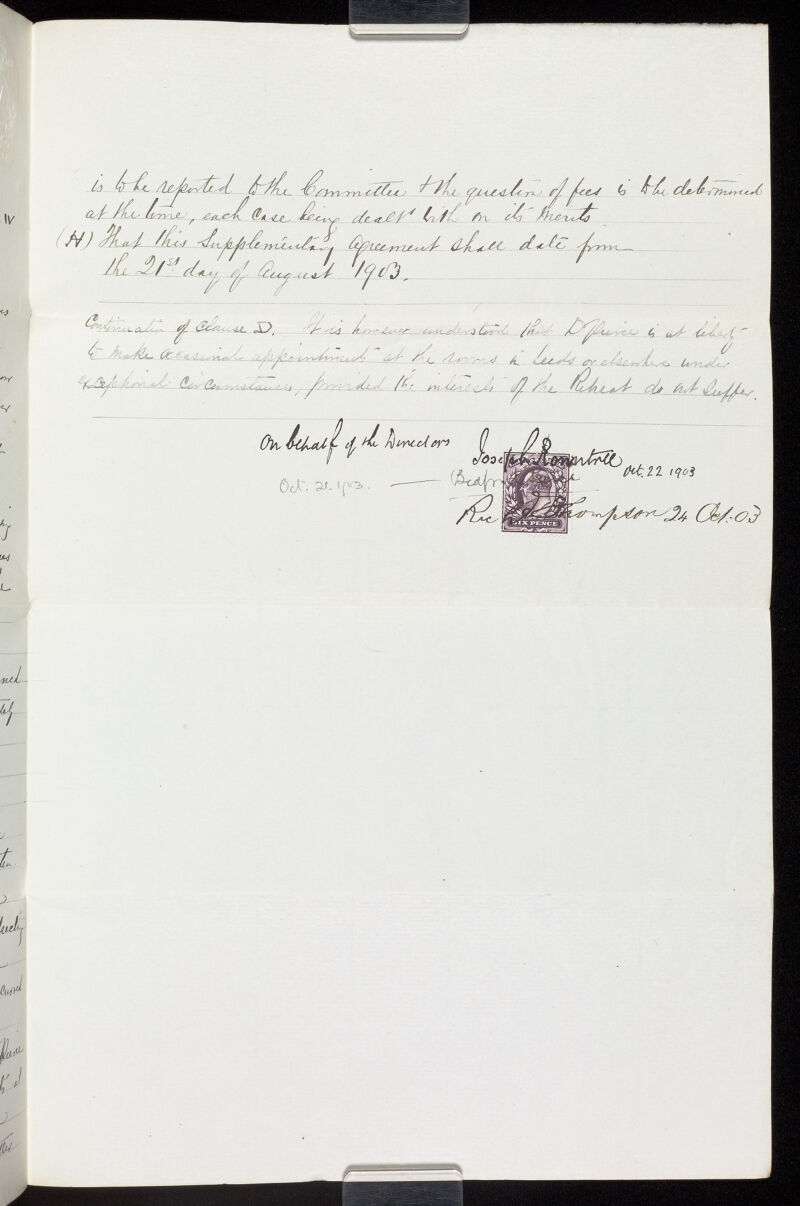 is to be reported to the Committee & the question of fees is to be determined
at the time, each case being dealt with on its merits
(H) That this Supplementary Agreement shall date from
the 21st day of August 1903.
Continuation of clause D. It is however understood that Dr Pierce is at liberty
to make occasional appointments at the rooms in Leeds or elsewhere under
exceptional circumstances, provided the interests of the Retreat do not suffer.
On behalf of the Directors
Joseph Rowntree
Oct. 22 1903
Oct. 21. 1903.
SIX PENCE
Thompson 24 Oct. 03